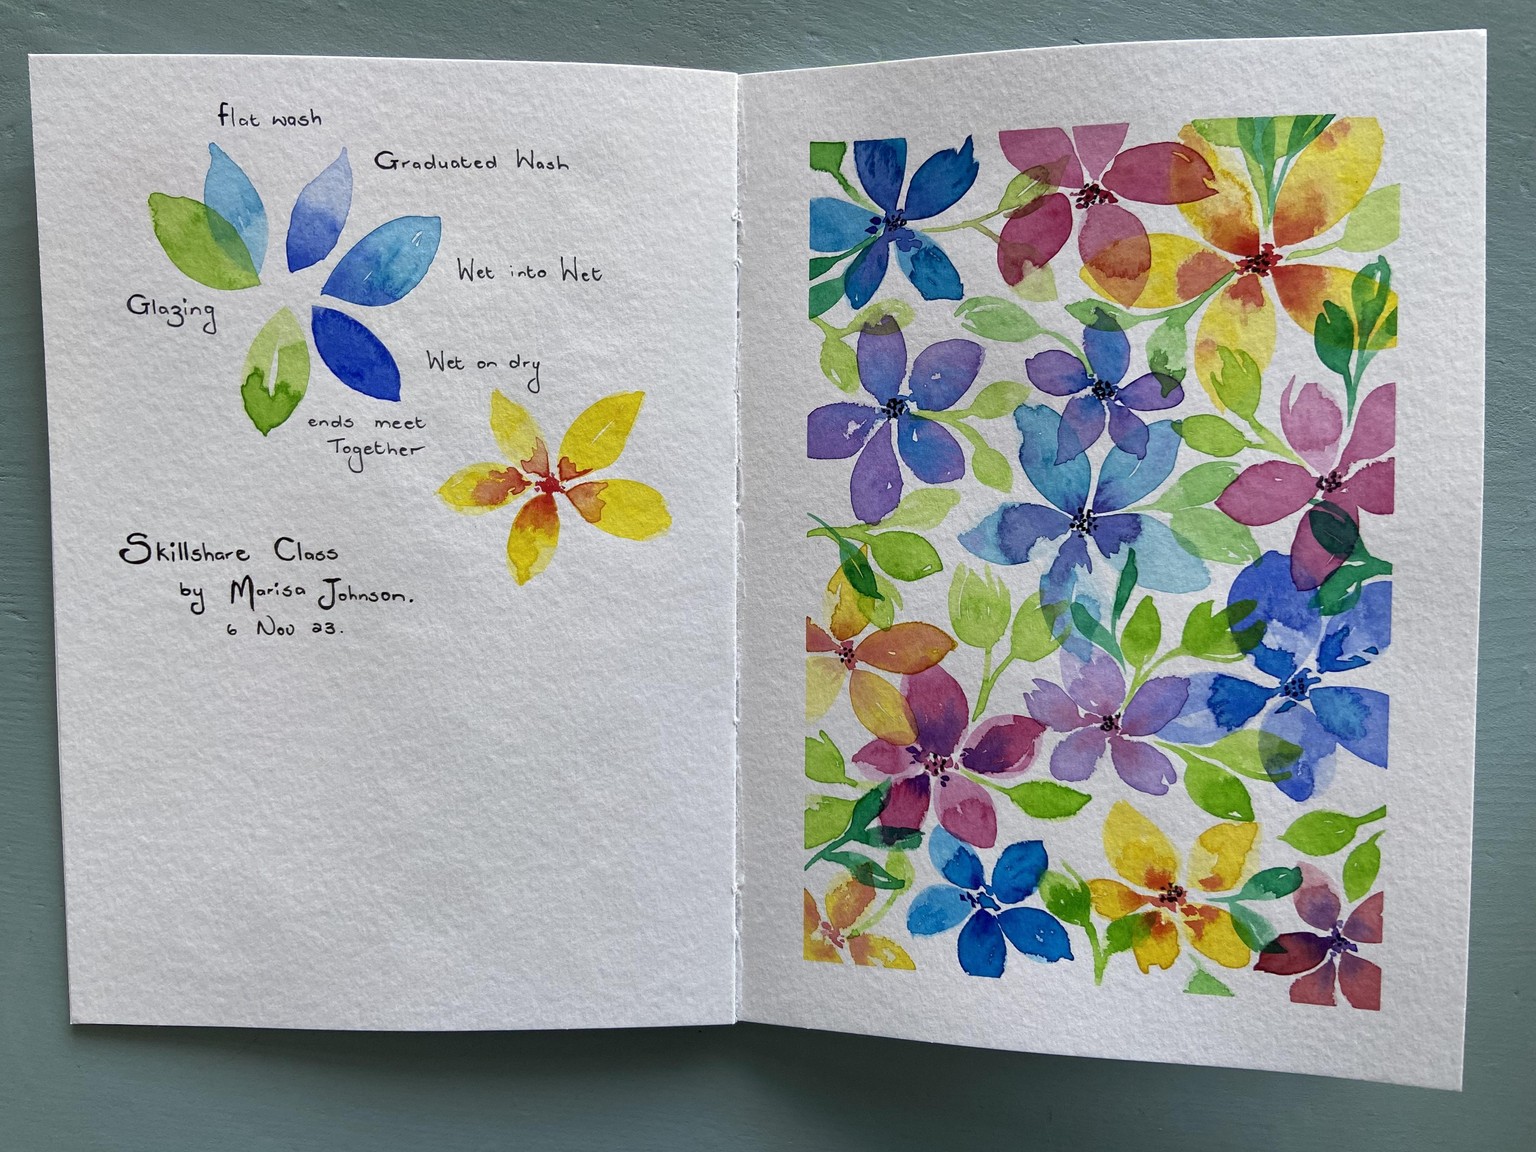 flat wash
Graduated Wash
Wet into Wet
Glazing
Wet on dry
ends meet
Together
Skillshare Class
by Marisa Johnson.
6 Nov 23.